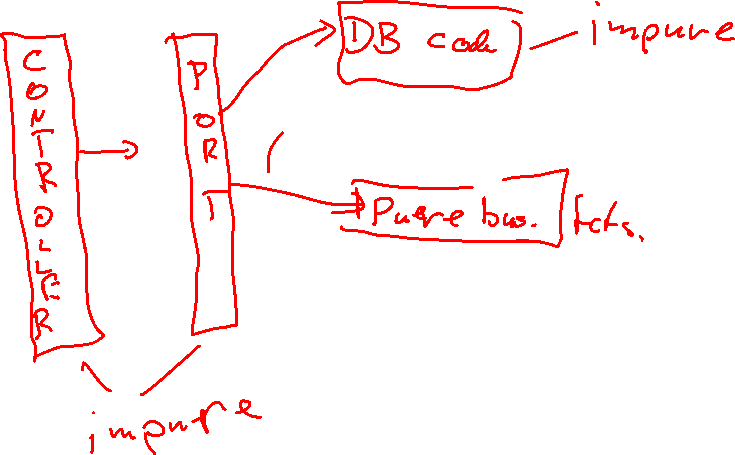 CONTROLLER
PORT
DB code
impure
Puere bus. fcts.
impure